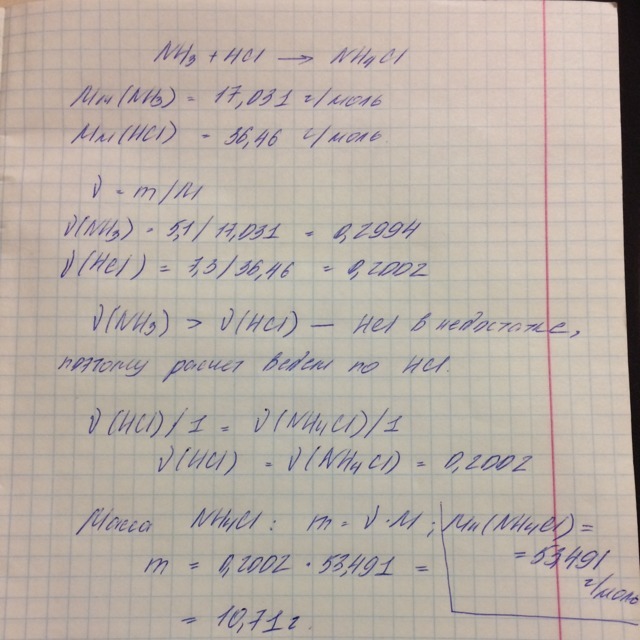 NH3 + HCl → NH4Cl
Mm(NH3) = 17,031 г/моль
Mm(HCl) = 36,46 г/моль
ν = m/M
ν(NH3) = 5,1/17,031 = 0,2994
ν(HCl) = 7,3/36,46 = 0,2002
ν(NH3) > ν(HCl) — HCl в недостатке,
поэтому расчет ведем по HCl.
ν(HCl)/1 = ν(NH4Cl)/1
ν(HCl) = ν(NH4Cl) = 0,2002
Масса NH4Cl: m = ν·M; Mm(NH4Cl) =
= 53,491
г/моль
m = 0,2002 · 53,491 =
= 10,71 г.